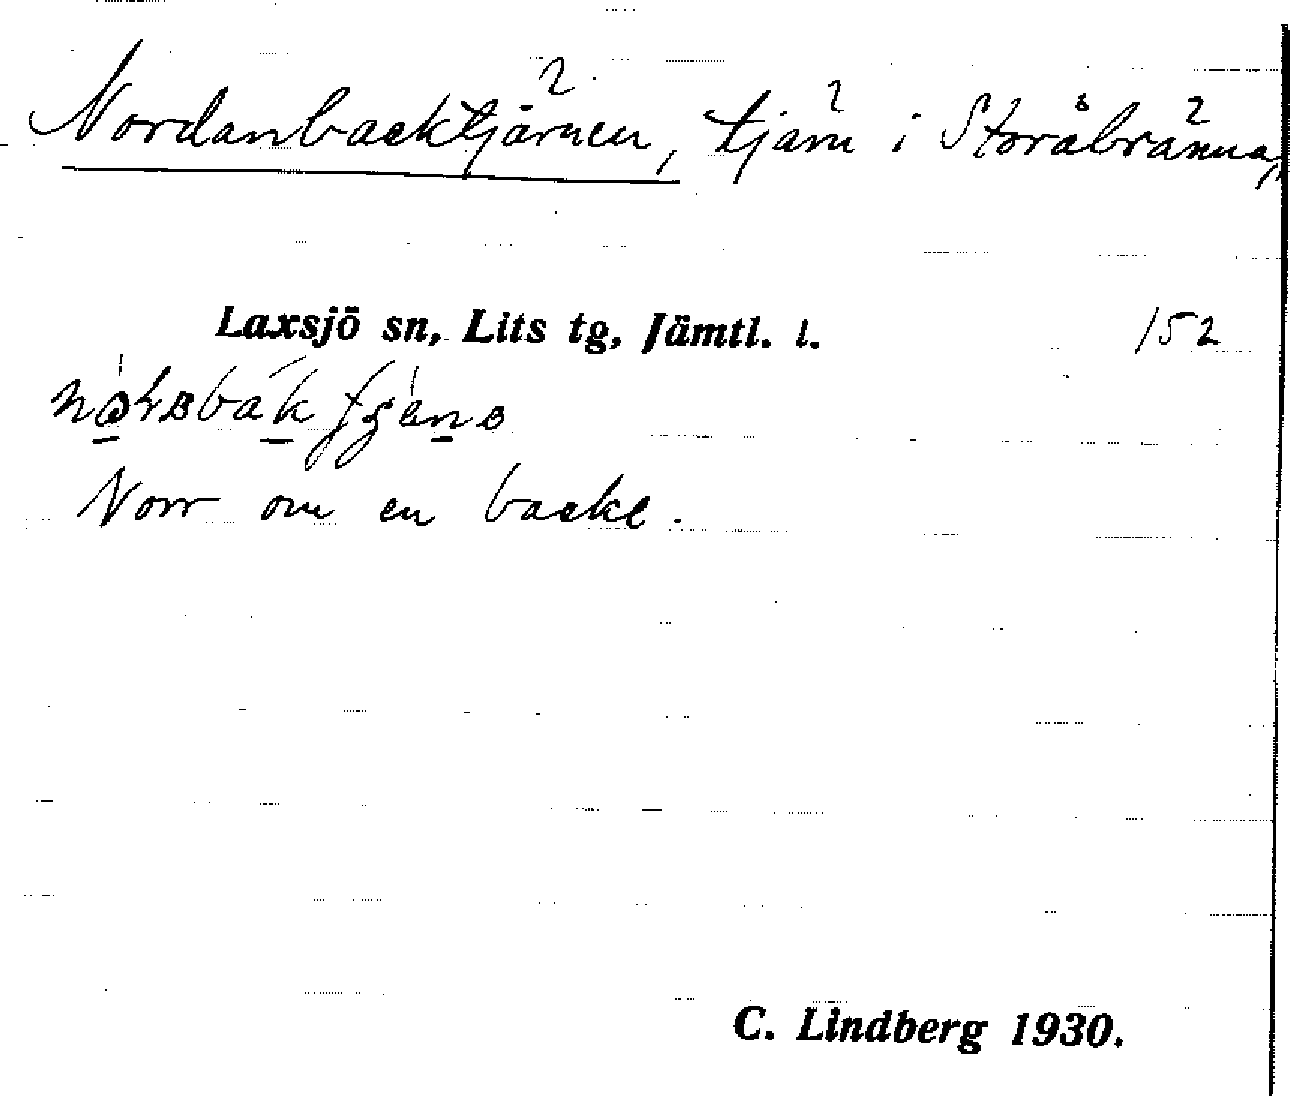 Nordanbacktjärnen, tjärn i Storåbränna,
Laxsjö sn, Lits tg, Jämtl. l. 152
Norr om en backe.
C. Lindberg 1930.